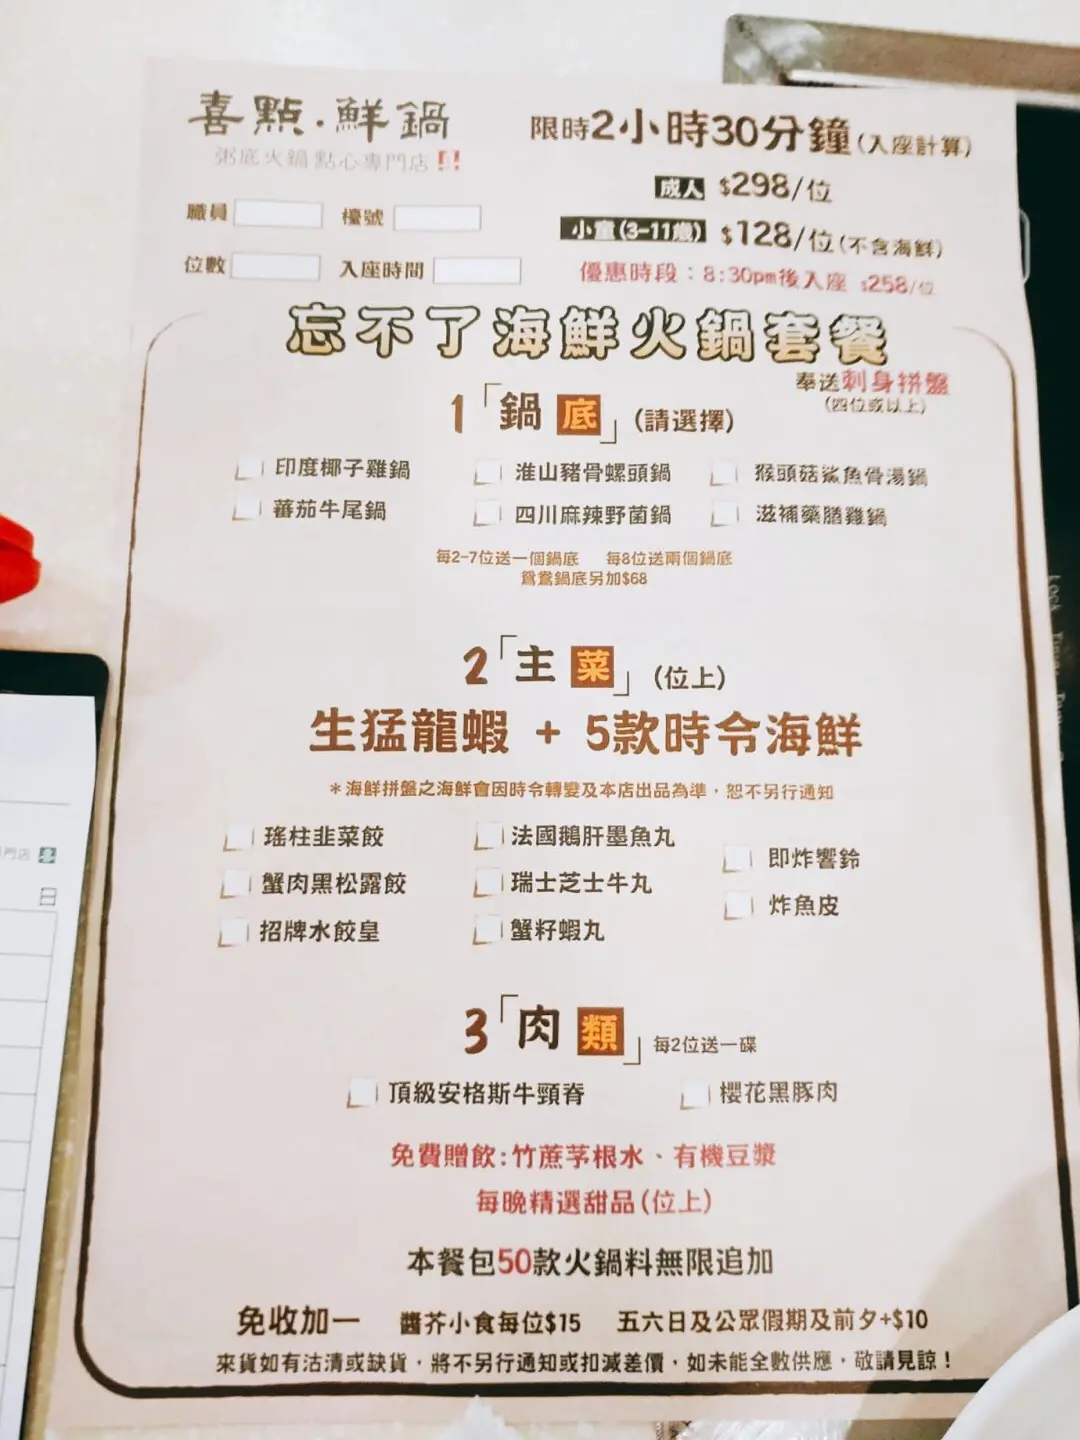 喜點·鮮鍋
粥底火鍋點心專門店
限時2小時30分鐘(入座計算)
成人 $298/位
小童(3-11歲) $128/位(不含海鮮)
優惠時段：8:30pm後入座 $258/位
職員 檯號
位數 入座時間
忘不了海鮮火鍋套餐
奉送刺身拼盤
(四位或以上)
1「鍋底」(請選擇)
印度椰子雞鍋 淮山豬骨螺頭鍋 猴頭菇鯊魚骨湯鍋
蕃茄牛尾鍋 四川麻辣野菌鍋 滋補藥膳雞鍋
每2-7位送一個鍋底 每8位送兩個鍋底
鴛鴦鍋底另加$68
2「主菜」(位上)
生猛龍蝦 + 5款時令海鮮
*海鮮拼盤之海鮮會因時令轉變及本店出品為準，恕不另行通知
瑤柱韭菜餃 法國鵝肝墨魚丸 即炸響鈴
蟹肉黑松露餃 瑞士芝士牛丸 炸魚皮
招牌水餃皇 蟹籽蝦丸
3「肉類」每2位送一碟
頂級安格斯牛頸脊 櫻花黑豚肉
免費贈飲:竹蔗茅根水、有機豆漿
每晚精選甜品(位上)
本餐包50款火鍋料無限追加
免收加一 醬芥小食每位$15 五六日及公眾假期及前夕+$10
來貨如有沽清或缺貨，將不另行通知或扣減差價，如未能全數供應，敬請見諒！
門店
日